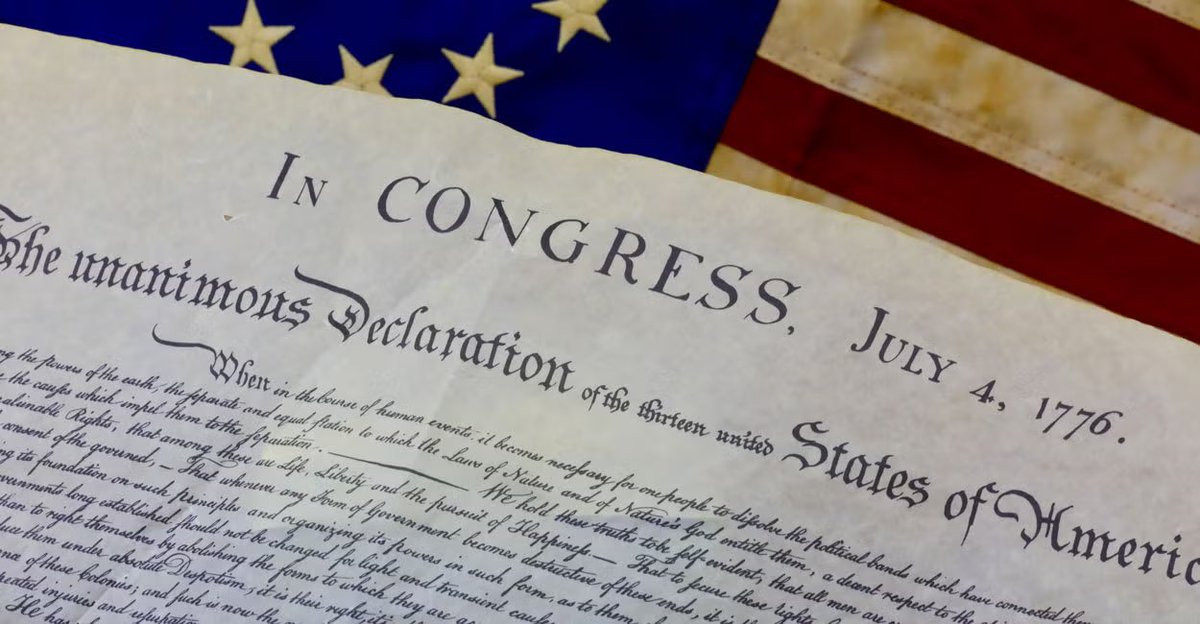 In CONGRESS, July 4, 1776.
The unanimous Declaration of the thirteen united States of Americ
When in the Course of human events, it becomes necessary for one people to dissolve the political bands which have connected them
ng the powers of the earth, the separate and equal station to which the Laws of Nature and of Nature's God entitle them, a decent respect to the
the causes which impel them to the separation. We hold these truths to be self-evident, that all men are
alienable Rights, that among these are Life, Liberty and the pursuit of Happiness.— That to secure these rights,
consent of the governed, — That whenever any Form of Government becomes destructive of these ends, it is
ng its foundation on such principles and organizing its powers in such form, as to them
vernments long established should not be changed for light and transient caus
than to right themselves by abolishing the forms to which they are a
duce them under absolute Despotism, it is their right, it
nce of these Colonies; and such is now the
eated injuries and usurpatio
He has